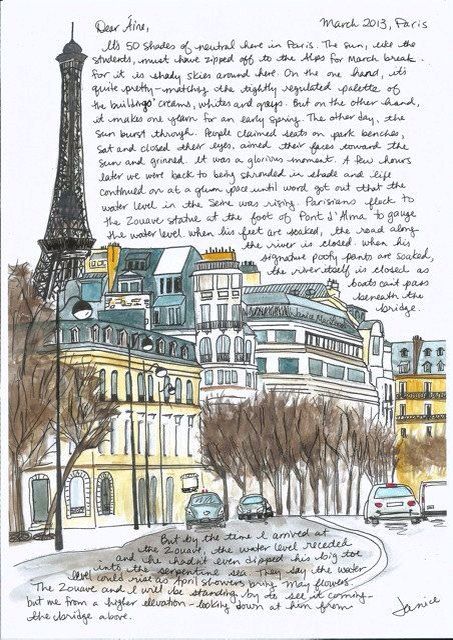 Dear Áine,
March 2013, Paris
It's 50 shades of neutral here in Paris. The sun, like the
students, must have zipped off to the Alps for March break.
For it is shady skies around here. On the one hand, it's
quite pretty - matching the tightly regulated palette of
the buildings' creams, whites and greys. But on the other hand,
it makes one yearn for an early spring. The other day, the
sun burst through. People claimed seats on park benches,
sat and closed their eyes, aimed their faces toward the
sun and grinned. It was a glorious moment. A few hours
later we were back to being shrouded in shade and life
continued on at a glum pace until word got out that the
water level in the Seine was rising. Parisians flock to
the Zouave statue at the foot of Pont d'Alma to gauge
the water level. When his feet are soaked, the road along
the river is closed. When his
signature poofy pants are soaked,
the river itself is closed as
boats can't pass
beneath the
bridge.
But by the time I arrived at
the Zouave, the water level receded
and he hadn't even dipped his big toe
into the serpentine sea. They say the water
level could rise as April showers bring May flowers.
The Zouave and I will be standing by to see it coming -
but me from a higher elevation - looking down at him from
the bridge above.
Janice